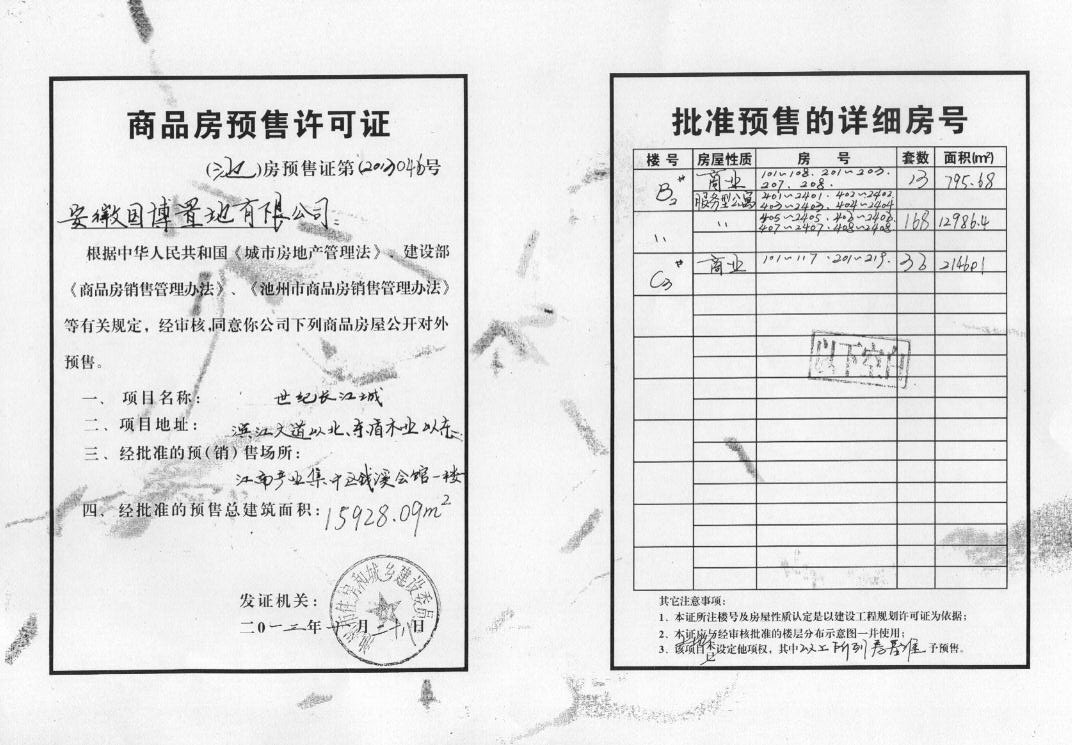 商品房预售许可证
(池)房预售证第(2013)046号
安徽国博置地有限公司
根据中华人民共和国《城市房地产管理法》、建设部
《商品房销售管理办法》、《池州市商品房销售管理办法》
等有关规定，经审核,同意你公司下列商品房屋公开对外
预售。
一、项目名称：世纪长江城
二、项目地址：滨江大道以北、木业以东
三、经批准的预(销)售场所：
江南产业集中区钱溪会馆一楼
四、经批准的预售总建筑面积：15928.09m²
发证机关：
二0一三年十一月二十八日
池州市住房和城乡建设委员会
批准预售的详细房号
楼号 房屋性质 房号 套数 面积(m²)
B2# 商业 101~108、201~203、 13 795.68
207、208、
服务型公寓 401~2401、402~2402
403~2403、404~2404
〃 〃 405~2405、406~2406、 168 12986.4
407~2407、408~2408
C3# 商业 101~117、201~219、 33 2146.01
以下空白
其它注意事项：
1．本证所注楼号及房屋性质认定是以建设工程规划许可证为依据；
2．本证应与经审核批准的楼层分布示意图一并使用；
3．该项目未设定他项权，其中以上所列为基准予预售。